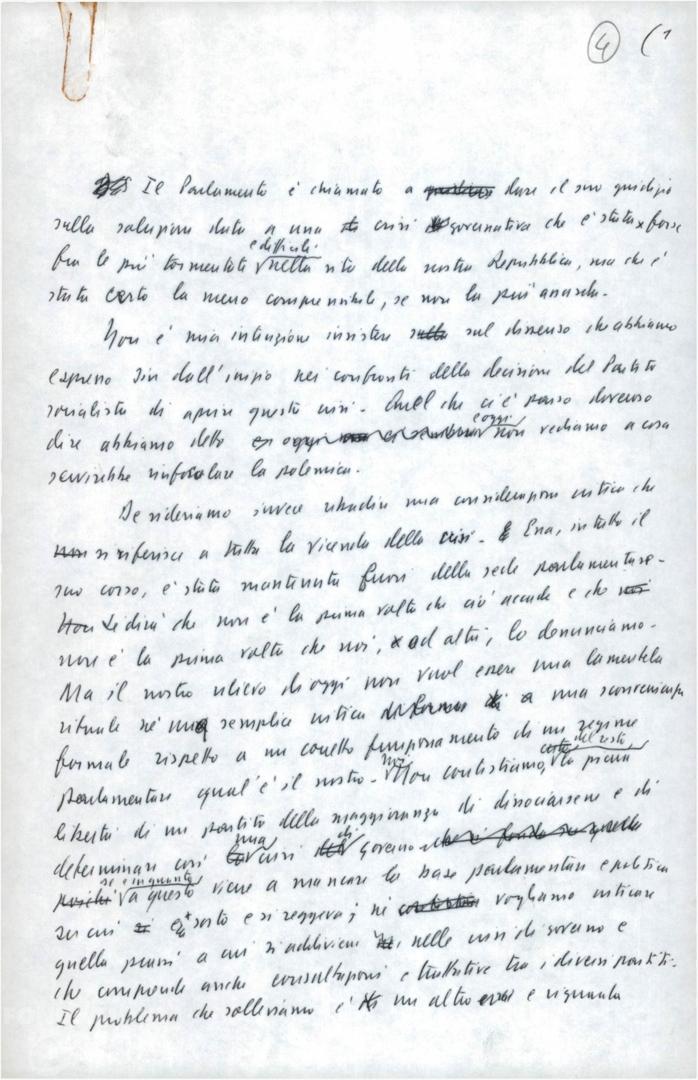 4 (1
Il Parlamento è chiamato a dare il suo giudizio
sulla soluzione data a una crisi governativa che è stata forse
e difficili
fra le più tormentate nella vita della nostra Repubblica, ma che è
stata certo la meno comprensibile, se non la più assurda.
Non è mia intenzione insistere sul dissenso che abbiamo
espresso sin dall'inizio nei confronti della decisione del Partito
socialista di aprire questa crisi. Quel che ci è parso doveroso
e oggi
dire abbiamo detto non vediamo a cosa
servirebbe rinfocolare la polemica.
Desideriamo invece ribadire una considerazione critica che
si riferisce a tutta la vicenda della crisi. Essa, in tutto il
suo corso, è stata mantenuta fuori della sede parlamentare.
Si dirà che non è la prima volta che ciò accade e che
non è la prima volta che noi, ed altri, lo denunciamo.
Ma il nostro rilievo di oggi non vuol essere una lamentela
rituale né una semplice critica a una sconvenienza
formale rispetto a un corretto funzionamento di un regime
certo del resto
parlamentare qual'è il nostro. Noi Non contestiamo, la piena
libertà di un partito della maggioranza di dissociarsene e di
una di
determinare così crisi governo
se e in quanto
a questo viene a mancare la base parlamentare e politica
su cui è sorto e si reggeva; né vogliamo criticare
quella prassi a cui si addiviene nelle crisi di governo e
che comprende anche consultazioni e trattative tra i diversi partiti.
Il problema che solleviamo è un altro e riguarda